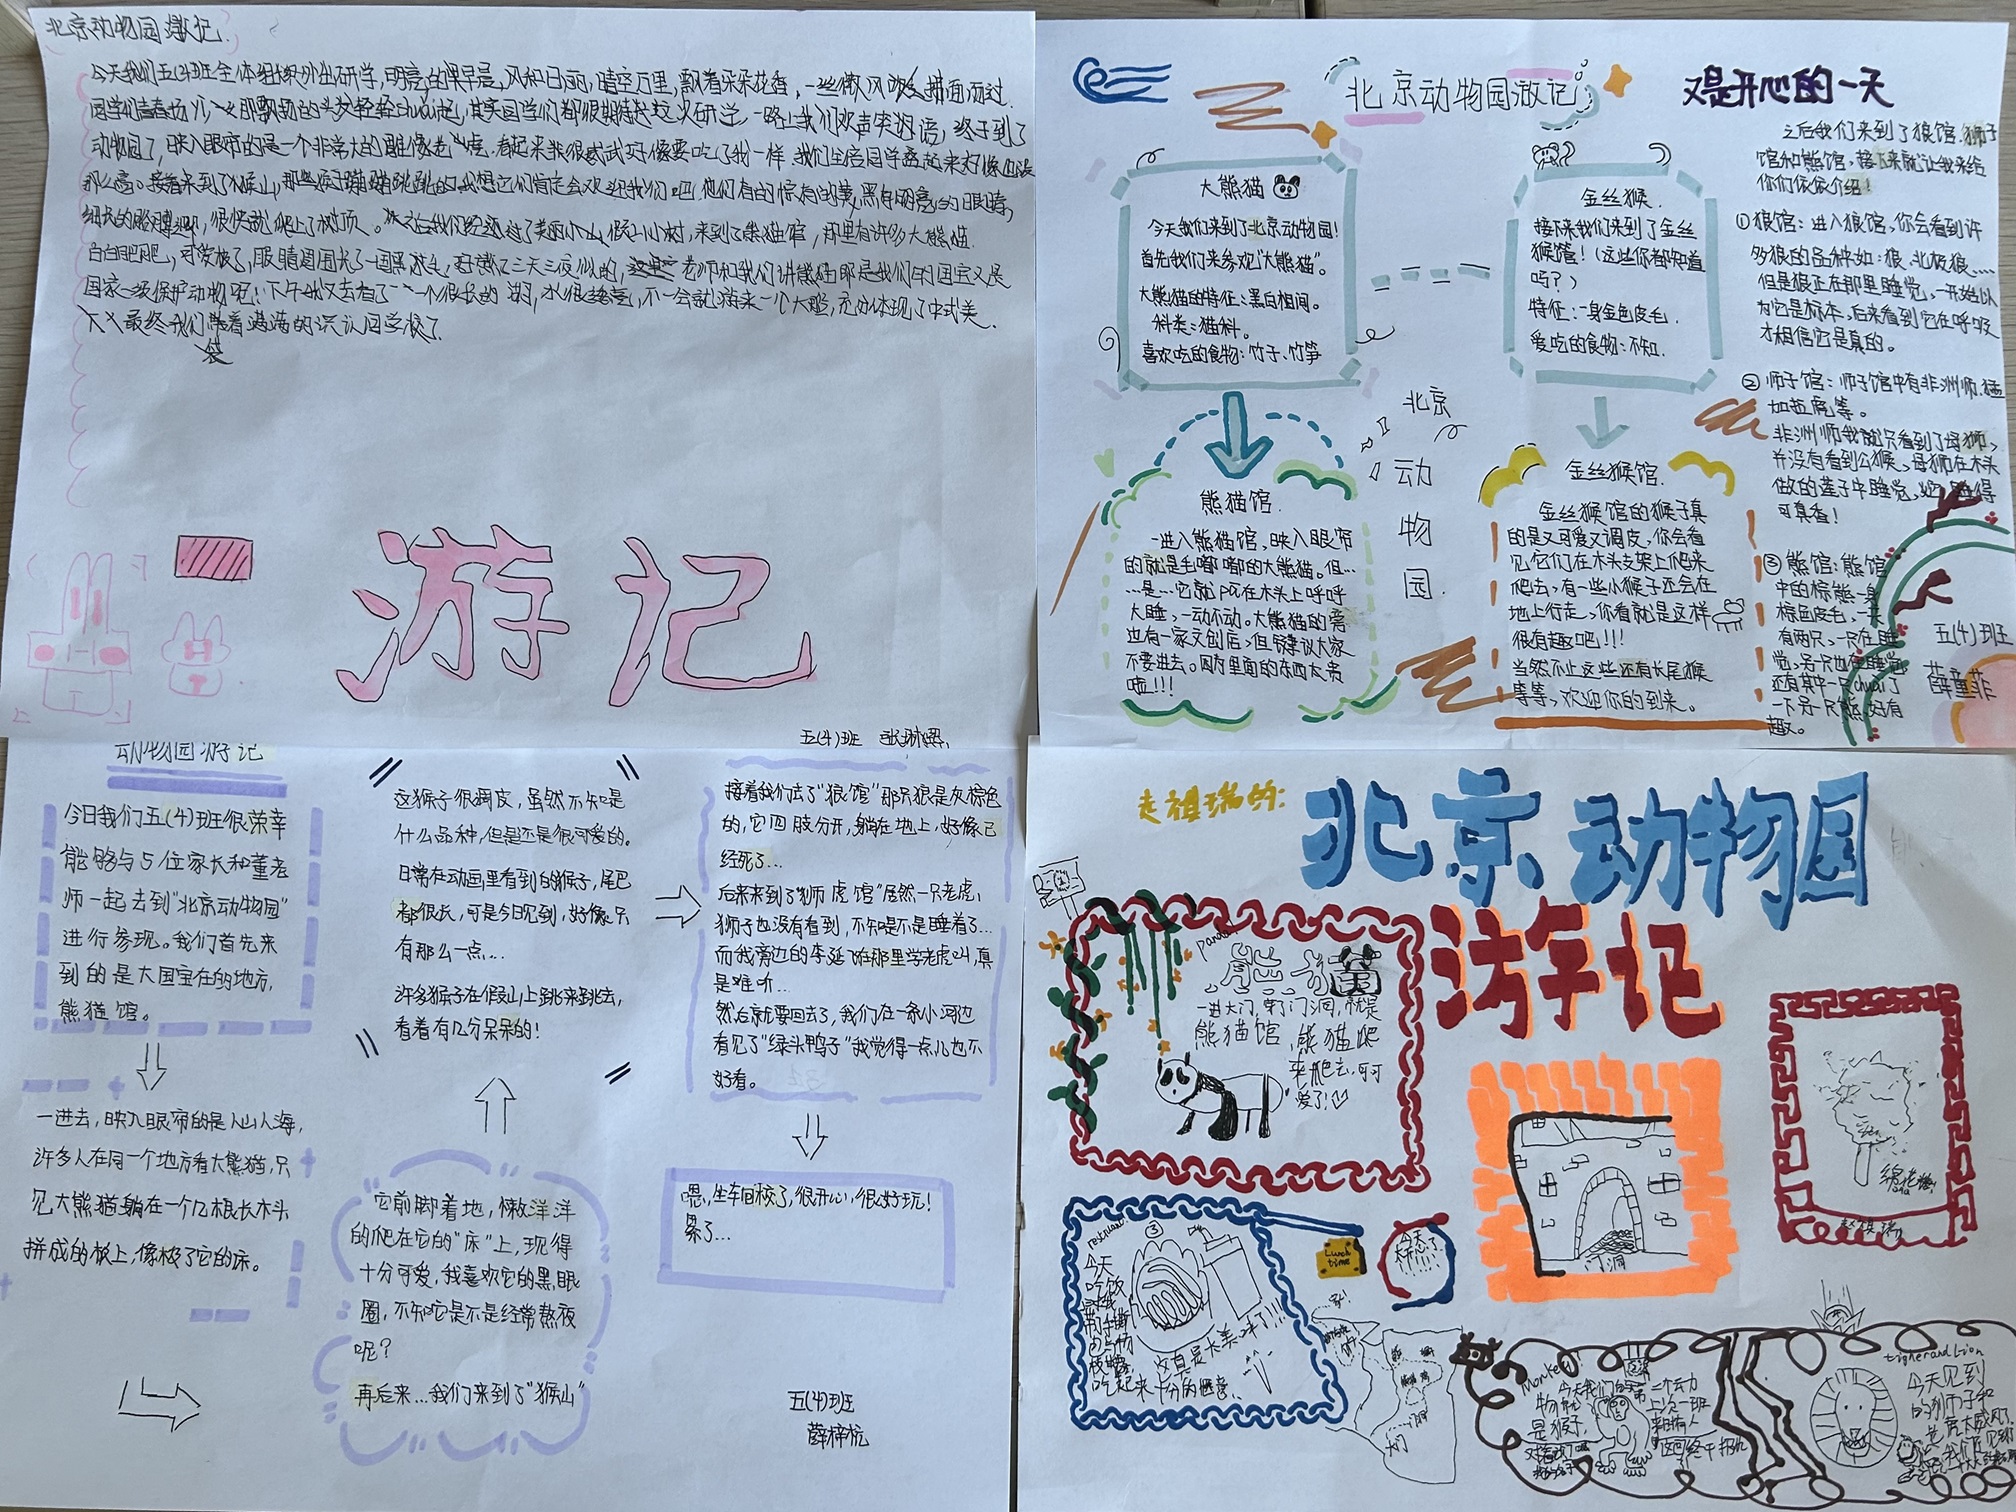 北京动物园游记
今天我们五(4)班全体组织外出研学,明亮的早晨,风和日丽,晴空万里,飘着朵朵花香,一丝微风迎面而过.
其实同学们都很期待这次研学,一路上我们欢声笑语,终于到了
动物园了,映入眼帘的是一个非常大的雕像老虎.看起来我很威武好像要吃了我一样,我们全倍同学叠起来好像也没
那么高。接着来到了猴山,那些猴子蹦蹦跳跳的我想它们肯定会欢迎我们吧,他们有的惊有的美,黑有明亮的眼睛,
细长的胳膊,很快就爬上了树顶。之后我们经过了美丽小山假山小树,来到了熊猫馆,那里有许多大熊猫.
白白肥肥,可爱极了,眼睛周围长了一圈黑,好熬了三天三夜似的,老师和我们讲熊猫那是我们的国宝又是
国家一级保护动物呢!下午我又去看了一个很长的湖,水很,不一会就游来一个大船,充分体现了中式美.
最终我们带着满满的识认回学校了.
袋
游记
五(4)班
北京动物园游记
又是开心的一天
大熊猫
今天我们来到了北京动物园!
首先我们来参观“大熊猫”。
大熊猫的特征:黑白相间。
科类:猫科。
喜欢吃的食物:竹子、竹笋
金丝猴
接下来我们来到了金丝
猴馆!(这些你都知道
吗?)
特征:一身金色皮毛.
爱吃的食物:不知.
北京
动
物
园
熊猫馆
一进入熊猫馆,映入眼帘
的就是毛嘟嘟的大熊猫。但…
…是…它就pā在木头上呼呼
大睡,一动不动。大熊猫的旁
边有一家文创店,但建议大家
不要进去。因为里面的东西太贵
啦!!!
金丝猴馆
金丝猴馆的猴子真
的是又可爱又调皮,你会看
见它们在木头支架上爬来
爬去,有一些小猴子还会在
地上行走,你看就是这样
很有趣吧!!!
当然不止这些还有长尾猴
等等,欢迎你的到来。
之后我们来到了狼馆.狮子
馆和熊馆,接下来就让我来给
你们依依介绍!
①狼馆:进入狼馆,你会看到许
多狼的品种如:狼、北极狼……
但是狼正在那里睡觉,一开始以
为它是标本,后来看到它在呼吸
才相信它是真的。
②师子馆:师子馆中有非洲师.孟
加拉虎等。
非洲师我就只看到了母狮,
并没有看到公猴,母狮在木头
做的莲子中睡觉,她睡得
可真香!
③熊馆:熊馆
中的棕熊一身
棕色皮毛,一共
有两只,一只在睡
觉,另一只也在睡觉,
还有其中一只chuai了
一下另一只熊,好有
趣。
五(4)班
薛童菲
动物园游记
今日我们五(4)班很荣幸
能够与5位家长和董老
师一起去到“北京动物园”
进行参现。我们首先来
到的是大国宝在的地方,
熊猫馆。
一进去,映入眼帘的是人山人海,
许多人在同一个地方看大熊猫,只
见大熊猫躺在一个几根长木头
拼成的板上,像极了它的床。
它前脚着地,懒洋洋
的爬在它的“床”上,现得
十分可爱,我喜欢它的黑眼
圈,不知它是不是经常熬夜
呢?
再后来…我们来到了“猴山”
这猴子很调皮,虽然不知是
什么品种,但是还是很可爱的。
日常在动画里看到的猴子,尾巴
都很长,可是今日见到,好像只
有那么一点…
许多猴子在假山上跳来跳去,
看着有几分呆呆的!
接着我们去了“狼馆”那只狼是灰棕色
的,它四肢分开,躺在地上,好像已
经死了…
后来来到了“狮虎馆”居然一只老虎,
狮子也没有看到,不知是不是睡着了…
而我旁边的李延飞在那里学老虎叫,真
是难听…
然后就要回去了,我们在一条小河边
看见了“绿头鸭子”我觉得一点儿也不
好看。
嗯,坐车回校了,很开心,很好玩!
累了…
五(4)班
薛梓杭
走祖瑞的:
北京动物园
游记
panda
熊猫
一进大门,穿了门洞,就是
熊猫馆,熊猫爬
来爬去,可可
爱了!
门洞
绵花糖
Lunch
time
③
今天
吃饭
这真是太美味了!!!
吃起来十分的惬意.
大门
Monkey
今天我们的第二个动
物就
是猴子,
tiger and Lion
今天见到
的狮子和
老虎太威风!